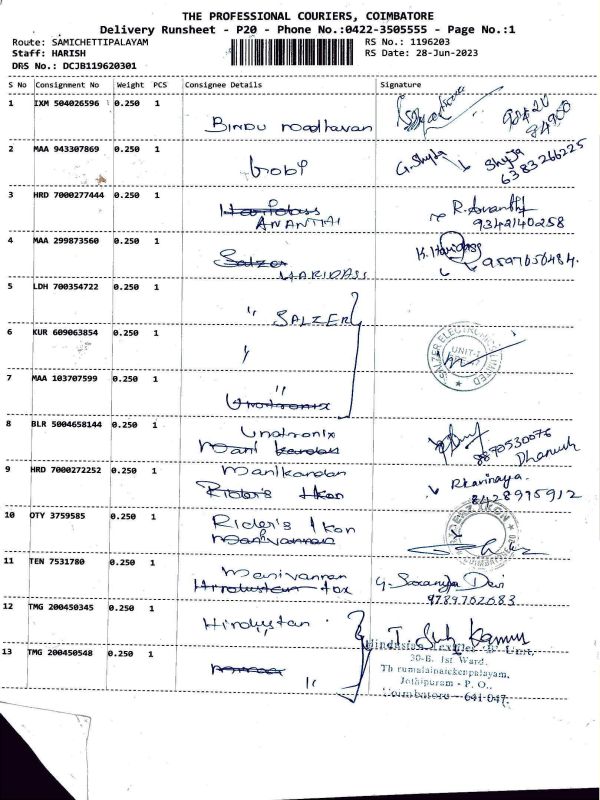 THE PROFESSIONAL COURIERS, COIMBATORE
Delivery Runsheet - P20 - Phone No.:0422-3505555 - Page No.:1
Route: SAMICHETTIPALAYAM
RS No.: 1196203
Staff: HARISH
RS Date: 28-Jun-2023
DRS No.: DCJB119620301
S No Consignment No Weight PCS Consignee Details Signature
1 IXM 504026596 0.250 1
Bindu madhavan
2 MAA 943307869 0.250 1
Gobi
G. Shyja
Shyja
6383266225
3 HRD 7000277444 0.250 1
Haridass
ANANTHI
R. Ananthi
9342140258
4 MAA 299873560 0.250 1
Salzer
HARIDASS
K. Haridass
5 LDH 700354722 0.250 1
" SALZER
6 KUR 609063854 0.250 1
"
SALZER ELECTRONICS LIMITED
UNIT-1
7 MAA 103707599 0.250 1
"
Unotronix
8 BLR 5004658144 0.250 1
Unotronix
Mani kandan
8870530076
Dhanush
9 HRD 7000272252 0.250 1
Manikandan
Rider's Ikon
8428915912
10 OTY 3759585 0.250 1
Rider's Ikon
Manivannan
11 TEN 7531780 0.250 1
Manivannan
Hindustan tex
G. Saranya Devi
9789702683
12 TMG 200450345 0.250 1
Hindustan
13 TMG 200450548 0.250 1
"
Hindustan Textiles 'B' Unit,
30-B, 1st Ward,
Thirumalainaickenpalayam,
Jothipuram - P. O.,
Coimbatore - 641 047.